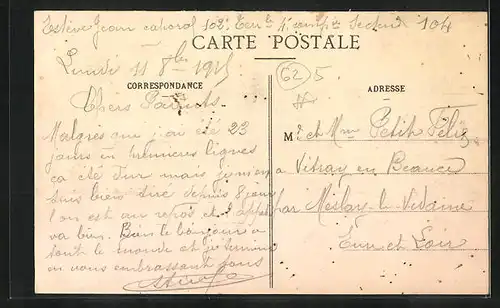 Estève Jean caporal 102e Ter le 4 compie Secteur 104
CARTE POSTALE
Lundi 11 8bre 1915
CORRESPONDANCE
ADRESSE
62 5
Chers Parents
Malgrés que j'ai été 23
jours en premieres lignes
ça été dur mais je m'en
suis bien tiré depuis 8 jours
l'on est au repos et l'appetit
va bien. Bien le bonjour a
tout le monde et je termine
en vous embrassant tous
Estève
Mr et Mme Petit Félix
a
Vitray en Beauce
par Meslay-le-Vidame
Eure et Loir